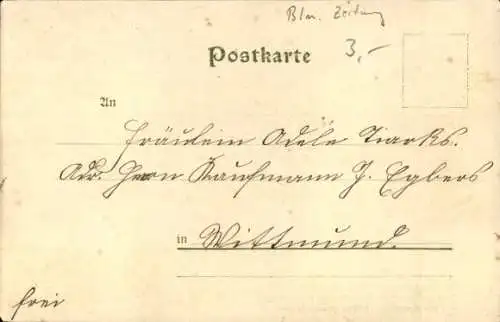 Blm. Zeitung
Postkarte
3,-
An
Fräulein Adele Tiarks.
Adr. Herrn Kaufmann J. Egbers
in Wittmund.
frei